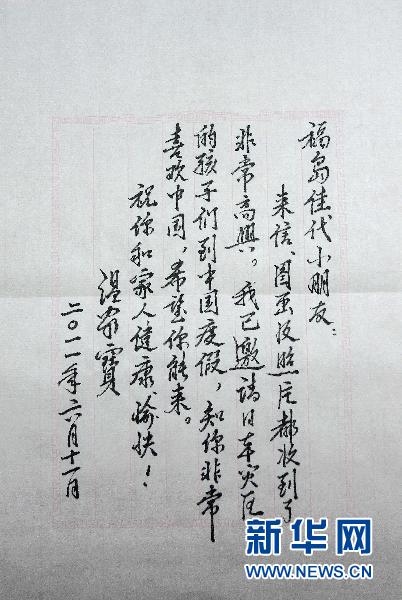 福岛佳代小朋友：
来信、图画及照片都收到了
非常高兴。我已邀请日本灾区
的孩子们到中国度假，知你非常
喜欢中国，希望你能来。
祝你和家人健康愉快！
温家宝
二〇一一年六月十一日
新华网
WWW.NEWS.CN